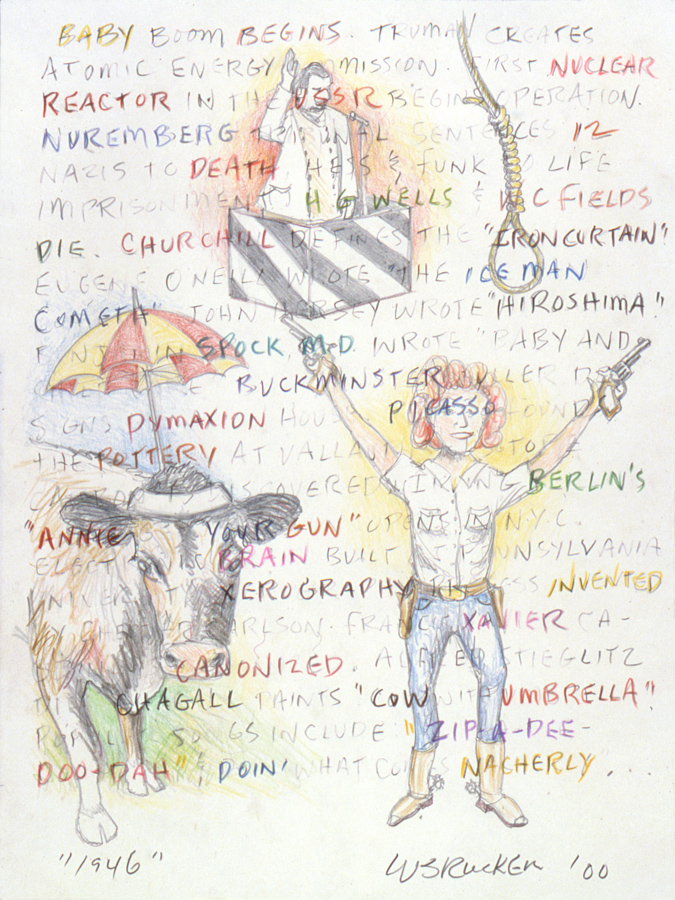 BABY BOOM BEGINS. TRUMAN CREATES
ATOMIC ENERGY MMISSION. FIRST NUCLEAR
REACTOR IN THE USSR BEGINS OPERATION.
NUREMBERG TRIBUNAL SENTENCES 12
NAZIS TO DEATH, HESS & FUNK TO LIFE
IMPRISONMENT. H G WELLS & W C FIELDS
DIE. CHURCHILL DEFINES THE "IRON CURTAIN".
EUGENE O'NEILL WROTE "THE ICEMAN
COMETH" JOHN HERSEY WROTE "HIROSHIMA".
SPOCK, M.D. WROTE "BABY AND
BUCKMINSTER
SIGNS DYMAXION HOUSE. PICASSO FOUNDS
THE POTTERY AT
BERLIN'S
"ANNIE YOUR GUN" OPENS IN N.Y.C.
BRAIN BUILT AT PENNSYLVANIA
XEROGRAPHY INVENTED
CARLSON. FRANCIS XAVIER CA-
CANONIZED. ALFRED STIEGLITZ
CHAGALL PAINTS "COW WITH UMBRELLA".
POPULAR SONGS INCLUDE: "ZIP-A-DEE-
DOO-DAH" & DOIN' WHAT COMES NACHERLY...
"1946" WSRucker '00